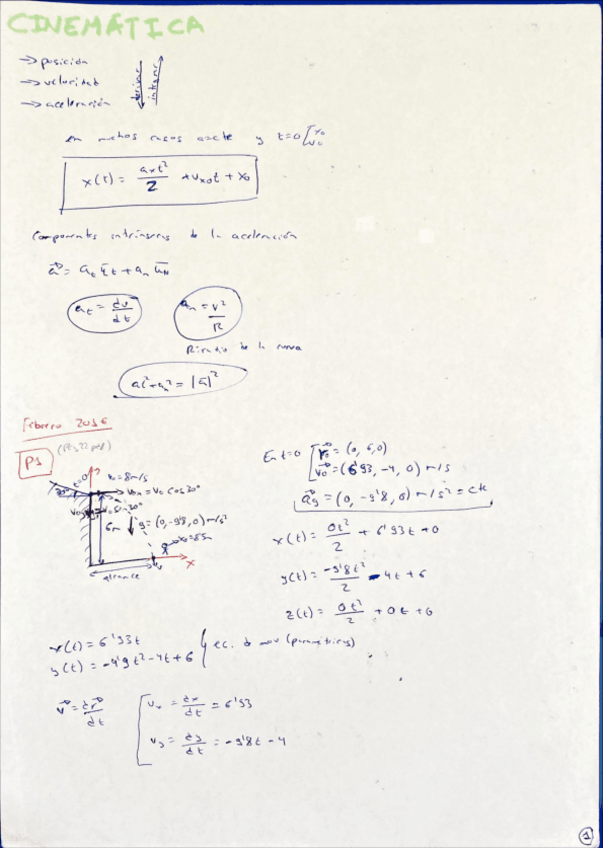 CINEMÁTICA
→ posición
→ velocidad
→ aceleración
derivar
integrar
en muchos casos a=cte y t=0 [x₀ v₀
x(t) = axt²/2 + vx0t + x₀
Componentes intrínsecas de la aceleración
a⃗ = at ūt + an ūN
at = dv/dt
an = v²/R
R: radio de la curva
at²+an² = |ā|²
Febrero 2016
P1
t=0
v₀=8m/s
30°
v0x = v₀ cos30°
6m
g=(0,-9'8,0)m/s²
alcance
x
En t=0 [r⃗₀ = (0, 6, 0)
v⃗₀ = (6'93, -4, 0) m/s
a⃗g = (0, -9'8, 0) m/s² = cte
x(t) = 0t²/2 + 6'93t + 0
y(t) = -9'8t²/2 - 4t + 6
z(t) = 0t²/2 + 0t + 0
x(t) = 6'93t
y(t) = -4'9t² - 4t + 6
ec. d mov (paramétricas)
v⃗ = dr⃗/dt
vx = dx/dt = 6'93
vy = dy/dt = -9'8t - 4
1